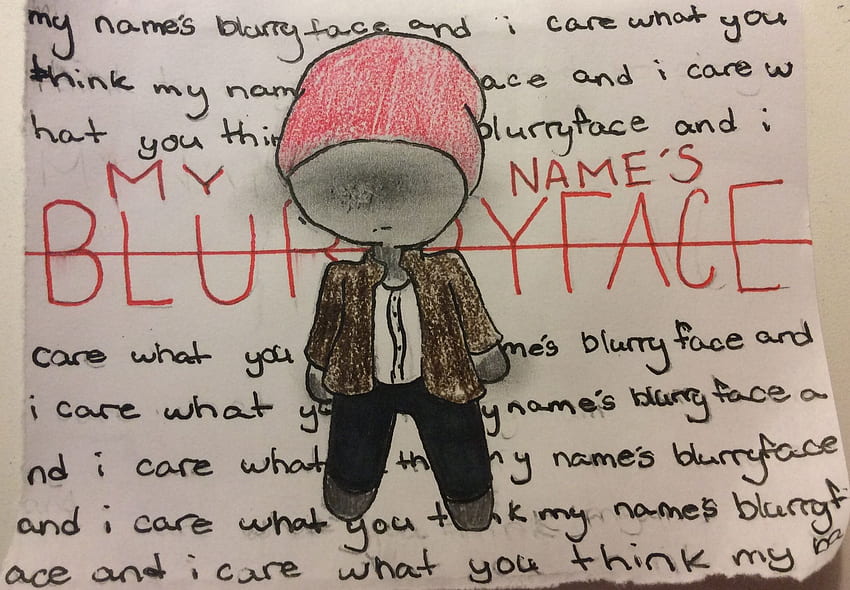 my name's blurryface and i care what you
think my nam ace and i care w
hat you thin blurryface and i
MY NAME'S
BLURRYFACE
care what you me's blurryface and
i care what yo y name's blurryface a
nd i care what th my name's blurryface
and i care what you t nk my name's blurryf
ace and i care what you think my